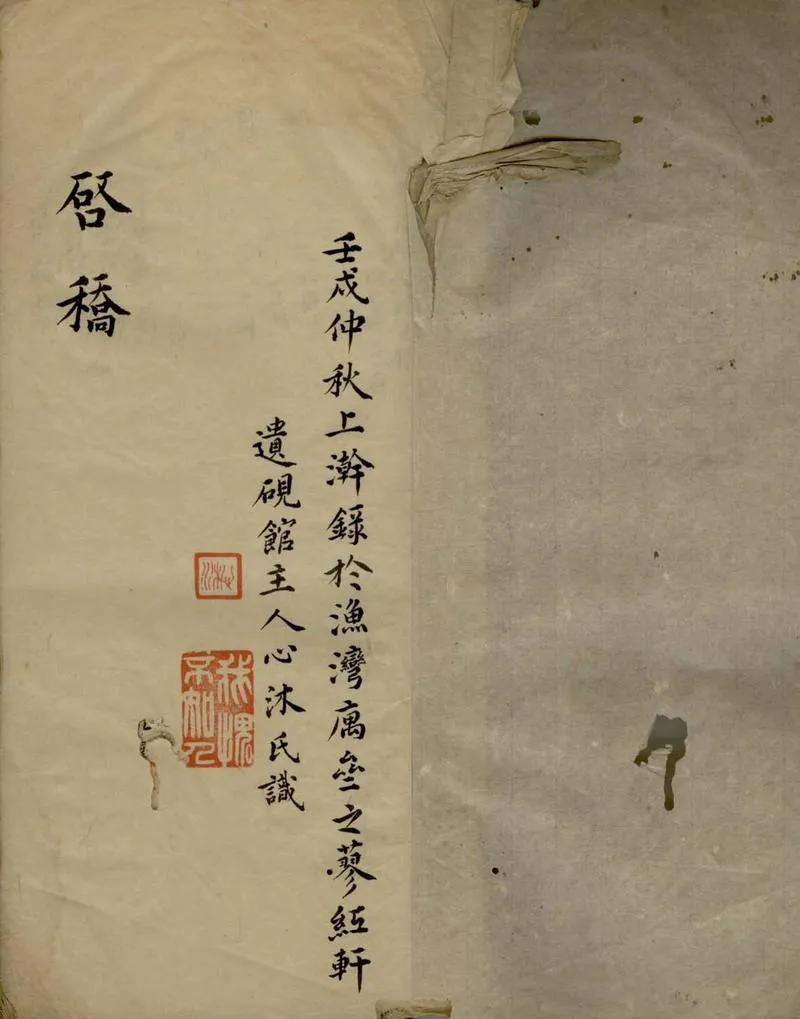 壬戌仲秋上澣錄於漁灣寓壘之蓼紅軒
遺硯館主人心沐氏識
心沐
啓稿